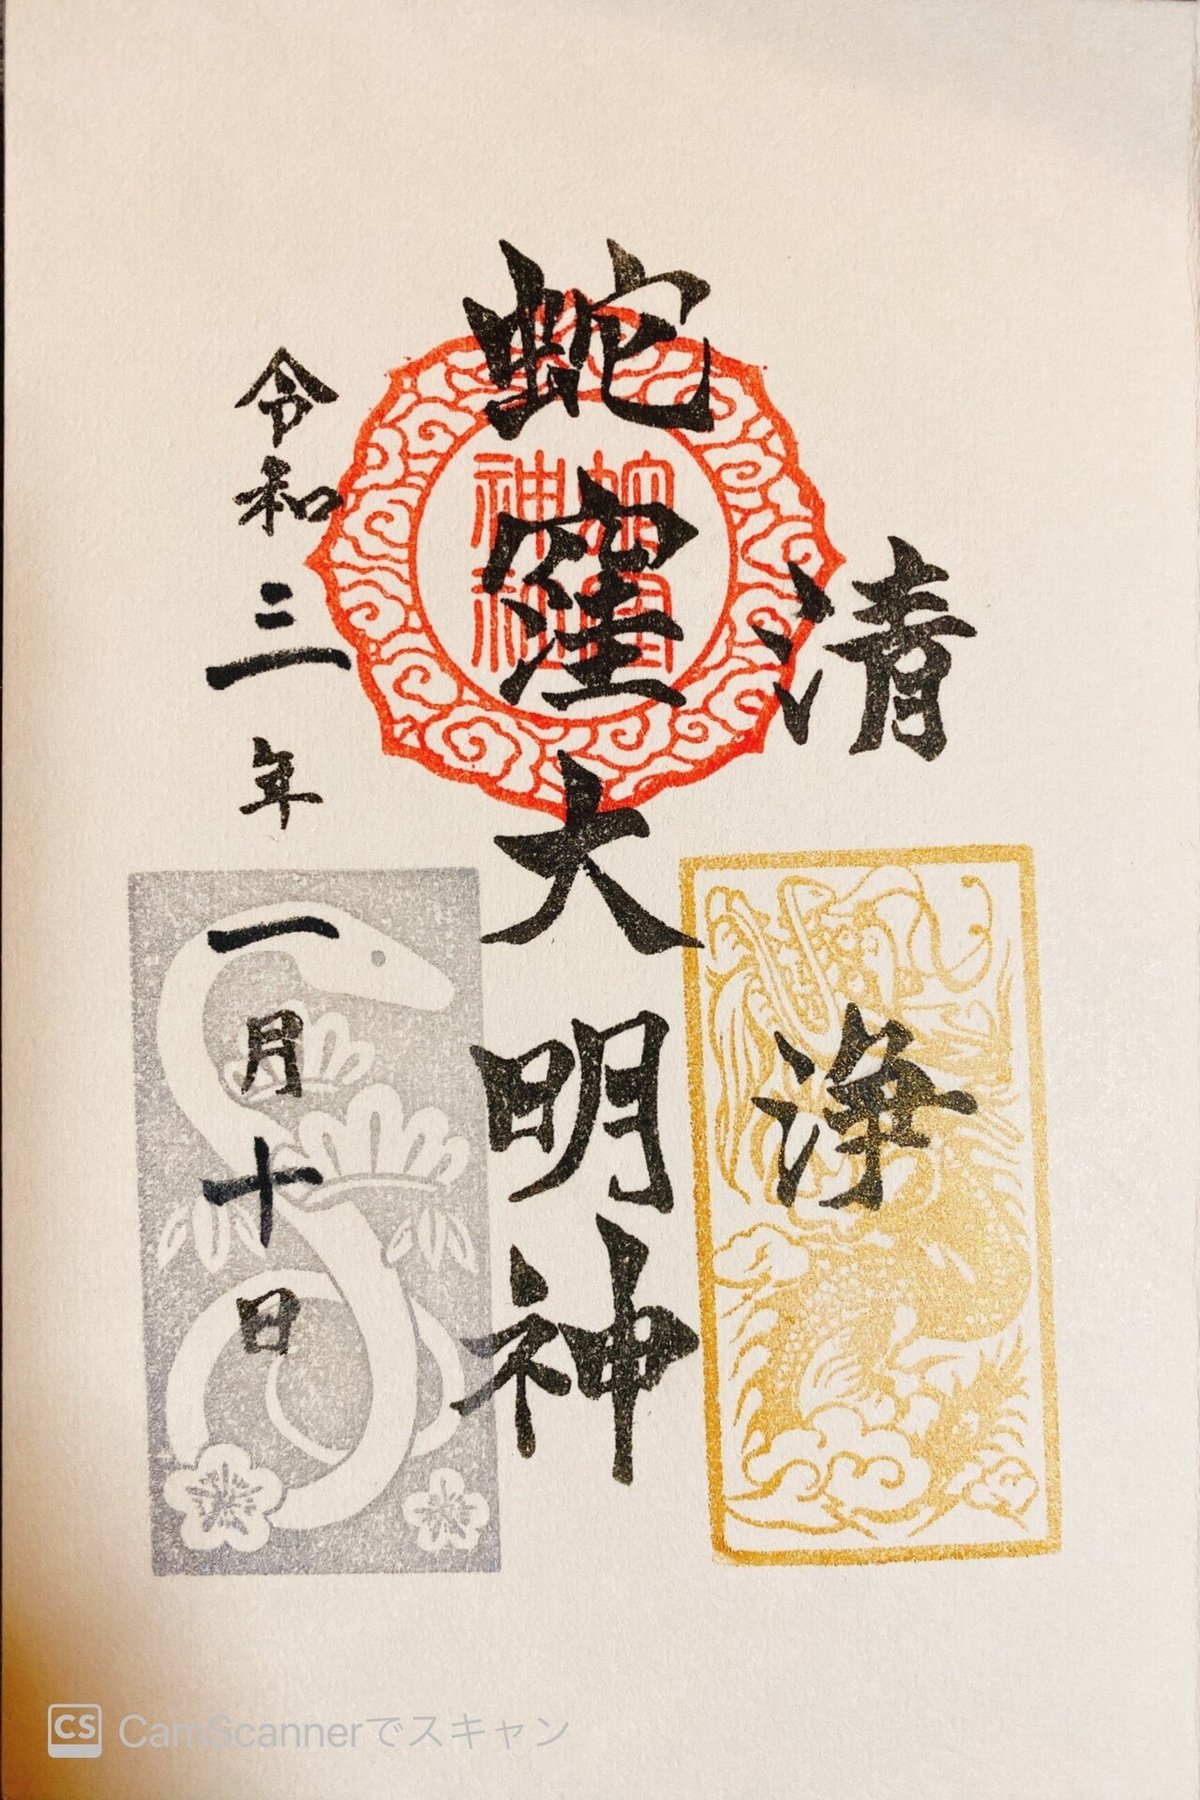 清浄
蛇窪大明神
令和三年一月十日
蛇窪神社
CS CamScannerでスキャン